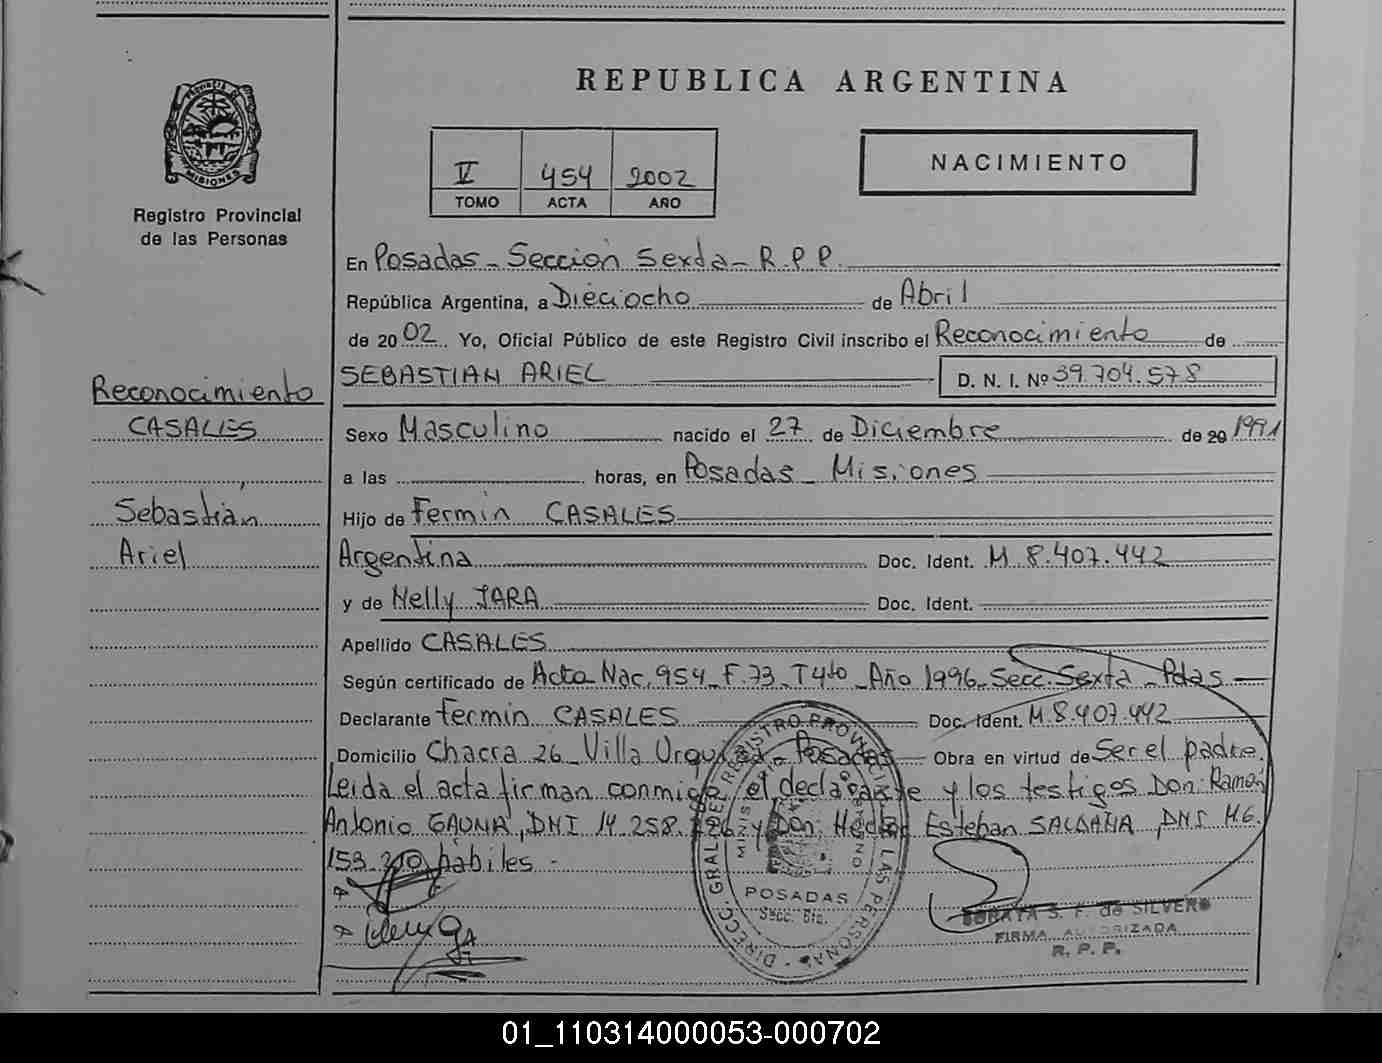 REPUBLICA ARGENTINA
PROVINCIA DE
MISIONES
Registro Provincial
de las Personas
V 454 2002
TOMO ACTA AÑO
NACIMIENTO
En Posadas - Sección Sexta - R.P.P.
República Argentina, a Dieciocho de Abril
de 2002. Yo, Oficial Público de este Registro Civil inscribo el Reconocimiento de
SEBASTIAN ARIEL D. N. I. Nº 39.704.578
Reconocimiento
CASALES
Sebastián
Ariel
Sexo Masculino nacido el 27 de Diciembre de 20 1991
a las horas, en Posadas - Misiones
Hijo de Fermin CASALES
Argentina Doc. Ident. M 8.407.442
y de Nelly JARA Doc. Ident.
Apellido CASALES
Según certificado de Acta Nac. 954 F. 73 T 4to Año 1996 Secc. Sexta - Pdas
Declarante Fermin CASALES Doc. Ident. M. 8.407.442
Domicilio Chacra 26 Villa Urquiza - Posadas Obra en virtud de Ser el padre.
Leida el acta firman conmigo, el declarante y los testigos Don: Ramón
Antonio GAUNA, DNI 14.258. y Don: Hector Esteban SALDAÑA, DNI M.6.
153.210 hábiles -
DIRECC. GRAL. DEL REGISTRO PROVINCIAL DE LAS PERSONAS
MINISTERIO DE GOBIERNO
POSADAS
Secc. 6ta.
SORAYA S. F. de SILVERO
FIRMA AUTORIZADA
R. P. P.
01_110314000053-000702